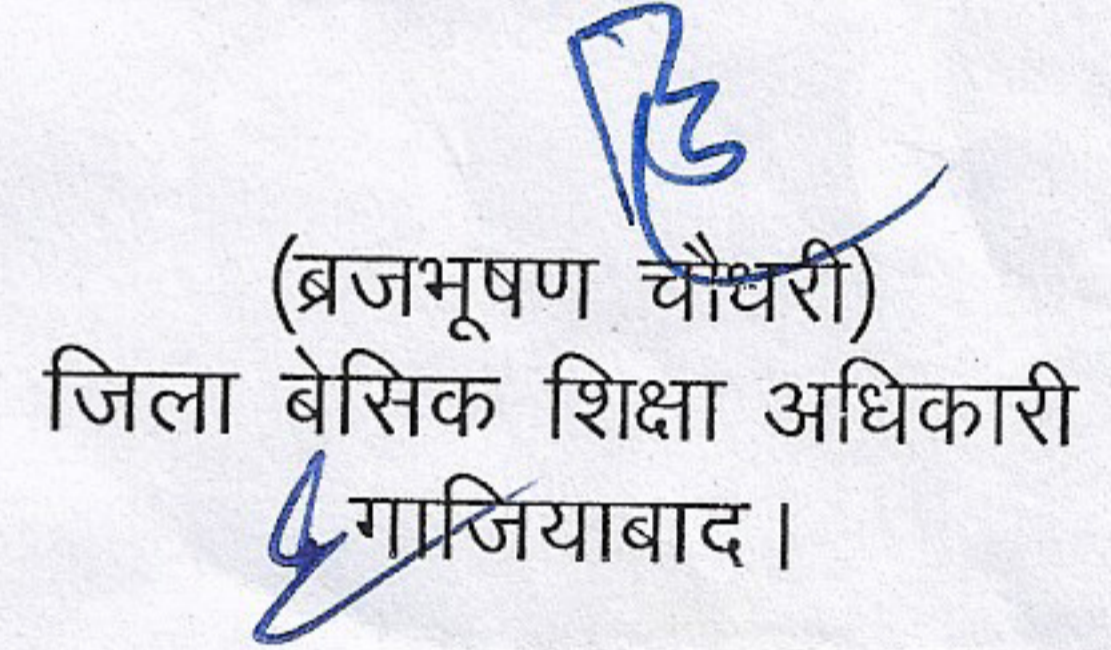 (ब्रजभूषण चौधरी)
जिला बेसिक शिक्षा अधिकारी
गाजियाबाद।